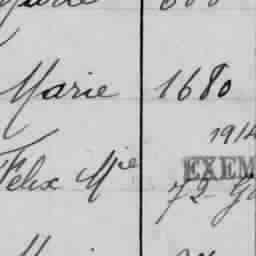 Marie 1680
1914
Félix Mie EXEM
72